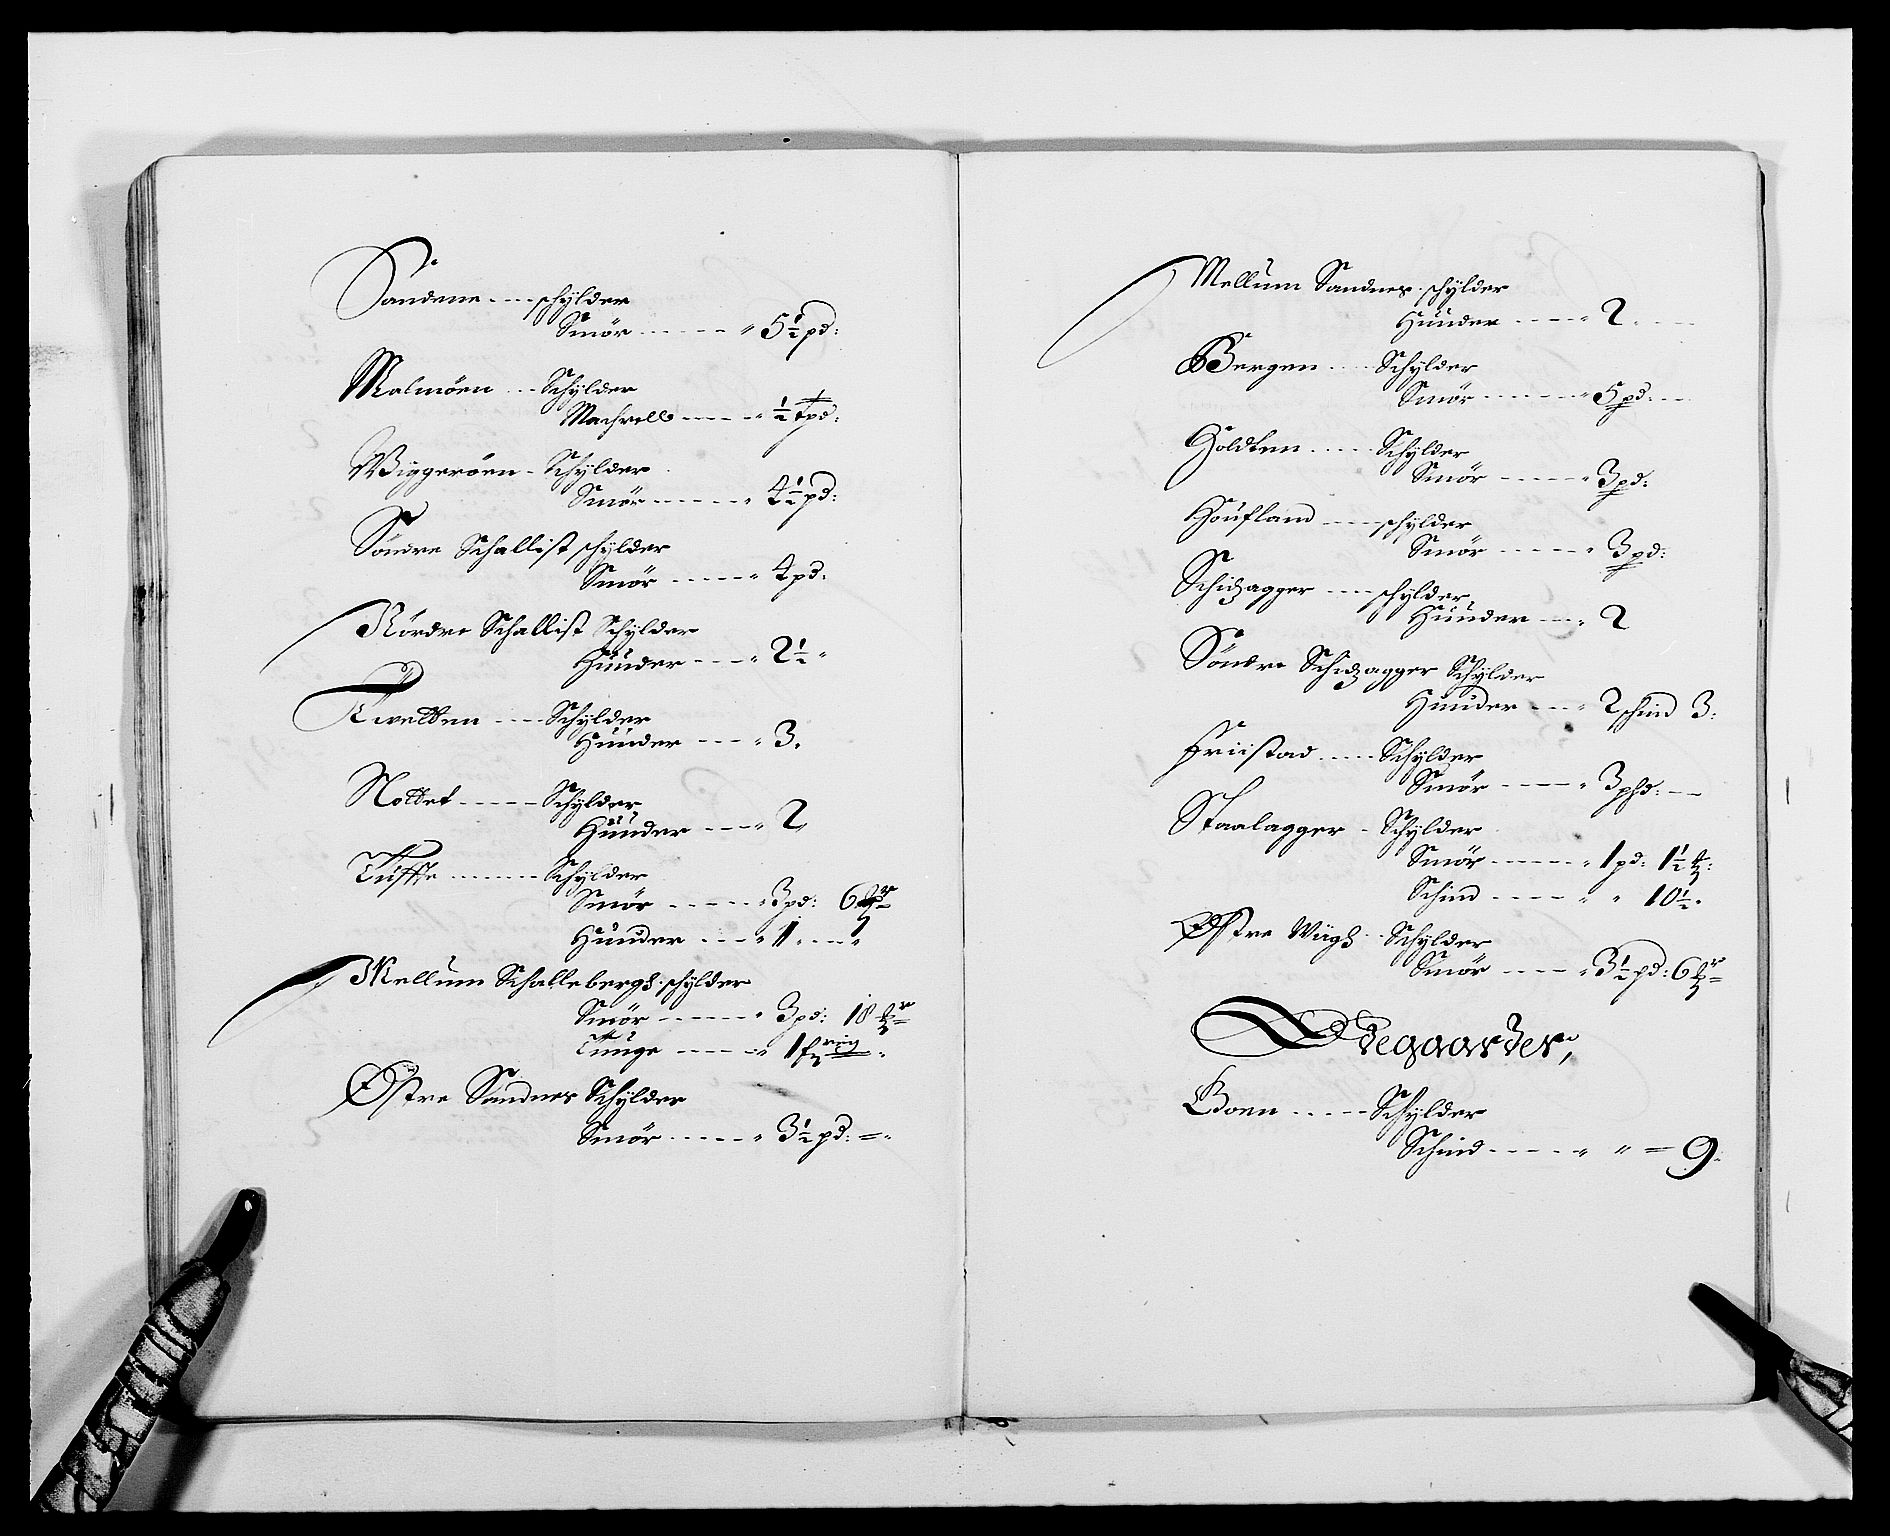 Sandene - - - schÿlder
Smör - - - - - " 5½ pd:
Malmöen - - Schÿlder
Machrell - - - - " ½ pd:
Wiggeröen - Schÿlder
Smör - - - - - " 4½ pd:
Söndre Schallist schÿlder
Smör - - - - " 4 pd:
Nördre Schallist Schÿlder
Hüüder - - - " 2½ "
Twetten - - - Schÿlder
Hüüder - - - " 3.
Nottet - - - - - Schÿlder
Hüüder - - - " 2
Tüffte - - - - - Schÿlder
Smör - - - - - " 3 pd: 6
Hüüder - - - " 1 - - - "
Mellum Schallebergh schÿlder
Smör - - - - - " 3 pd: 18
Tünge - - - - " 1
Østre Sandnes Schÿlder
Smör - - - - - " 3½ pd: = "
Mellum Sandnes schÿlder
Hüüder - - - - " 2 - - -
Bergen - - - Schÿlder
Smör - - - - - - " 5 pd: - -
Holdten - - - - Schÿlder
Smör - - - - - " 3 pd:
Houfland - - - schÿlder
Smör - - - - - " 3 pd:
Schizagger - - - schÿlder
Hüüder - - - " 2
Söndre Schizagger Schÿlder
Hüüder - - - " 2 schind 3:
Friistad - - - - Schÿlder
Smör - - - - " 3 phd: - -
Staalagger - Schÿlder
Smör - - - - - " 1 pd: 1½
Schind - - - - " " 10½.
Østre Wügh - - Schÿlder
Smör - - - - " 3½ pd: 6
Ødegaarder;
Boen - - - - - Schÿlder
Schind - - - - - " " = 9.